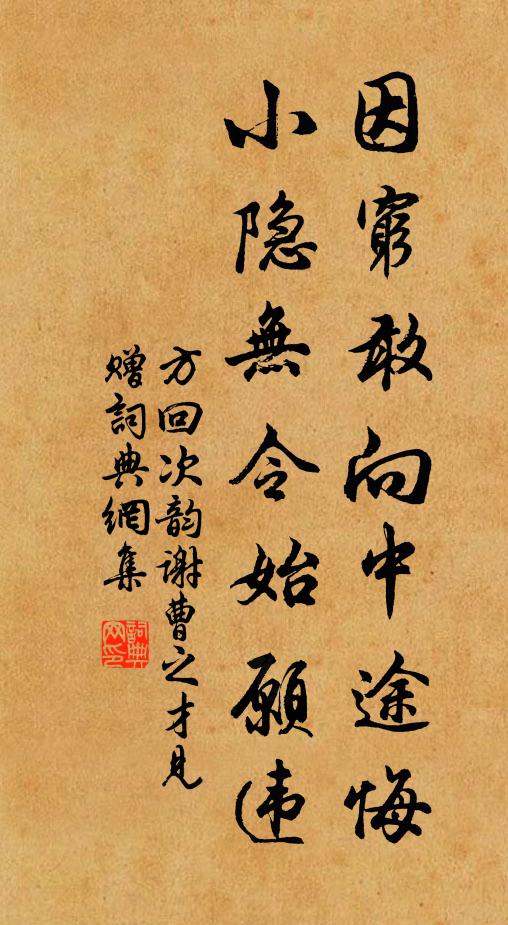 因窮敢向中途悔
小隐無令始願违
方回次韵谢曹之才見
赠詞典網集
詞典網印